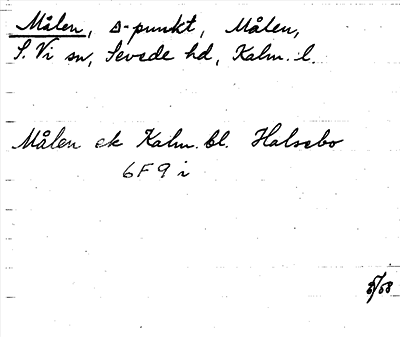 Målen, ∆-punkt, Målen,
S. Vi sn, Sevede hd, Kalm. l.
Målen ek Kalm. bl. Halsebo
6F9i